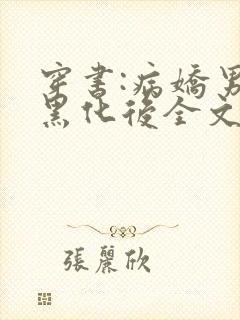 穿書:病嬌男
黑化後全文
張麗欣